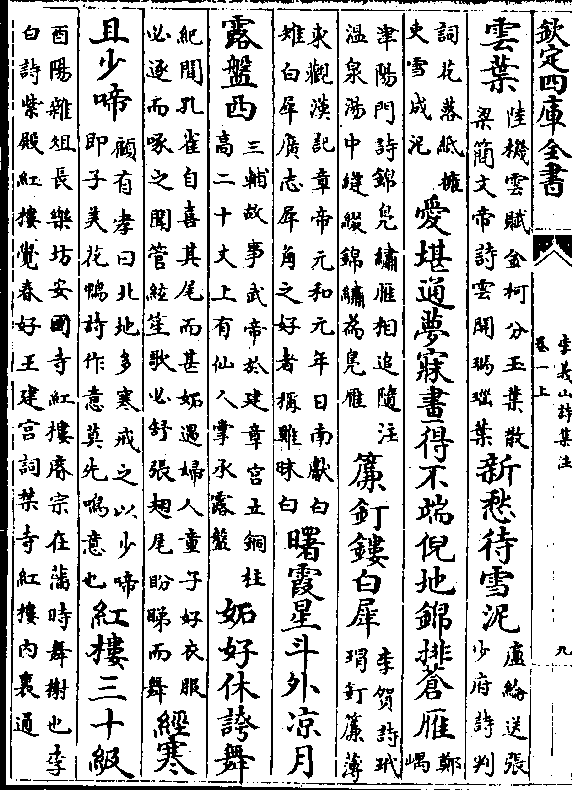 欽定四庫全書
李義山詩集注
卷一上
九
雲葉
陸機雲賦金柯分玉葉散
梁簡文帝詩雲開瑪瑙葉
新愁待雪泥
盧綸送張
少府詩判
詞花落紙擁
史雪成泥
愛堪通夢寐畫得不端倪地錦排蒼雁
鄭
嵎
津陽門詩錦鳧繡雁相追隨注
温泉湯中縫綴錦繡為鳧雁
簾釘鏤白犀
李賀詩玳
瑁釘簾薄
東觀漢記章帝元和元年日南獻白
雉白犀廣志犀角之好者稱雞昧白
曙霞星斗外凉月
露盤西
三輔故事武帝於建章宫立銅柱
高二十丈上有仙人掌承露盤
妬好休誇舞
紀聞孔雀自喜其尾而甚妬遇婦人童子好衣服
必逐而啄之聞管絃笙歌必舒張翅尾盼睇而舞
經寒
且少啼
顧有孝曰北地多寒戒之以少啼
即子美花鴨詩作意莫先鳴意也
紅樓三十級
酉陽雜俎長樂坊安國寺紅樓睿宗在藩時舞榭也李
白詩紫殿紅樓覺春好王建宫詞禁寺紅樓内裏通